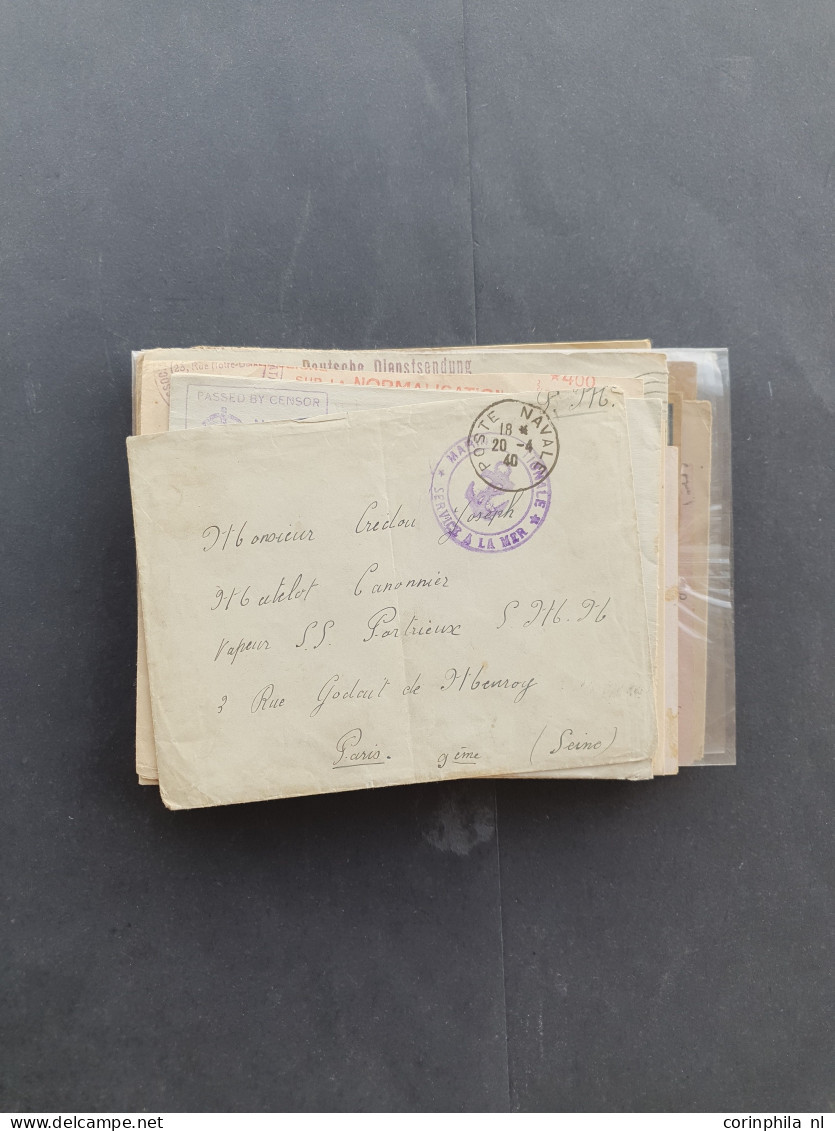 125, Rue
Deutsche Dienstsendung
SUR LA NORMALISATION
*400
PASSED BY CENSOR
F. M.
POSTE NAVALE
18 *
20 - 4
40
MARINE NATIONALE
* SERVICE A LA MER *
Monsieur Crédou Joseph
Matelot Canonnier
Vapeur S.S. Portrieux S M. M
3 Rue Godait de Menroy
Paris. 9ème (Seine)
www.delcampe.net
corinphila nl